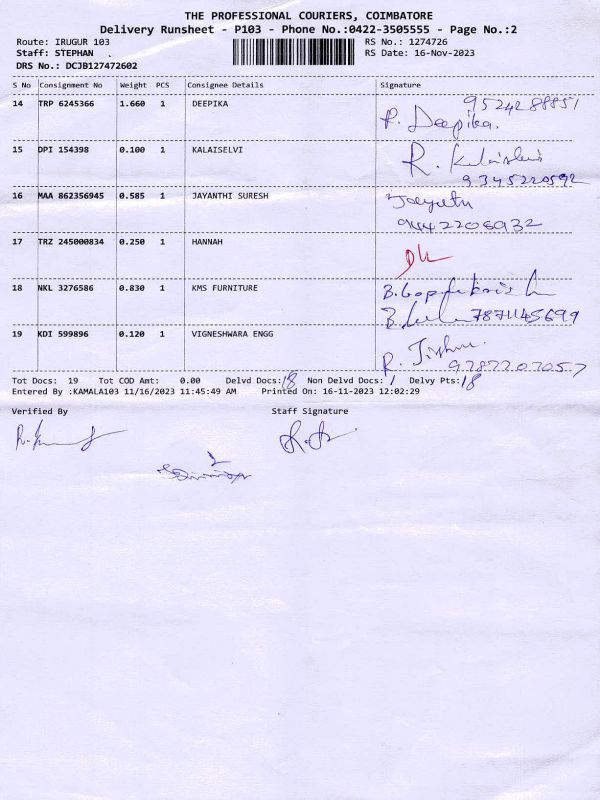 THE PROFESSIONAL COURIERS, COIMBATORE
Delivery Runsheet - P103 - Phone No.:0422-3505555 - Page No.:2
Route: IRUGUR 103 RS No.: 1274726
Staff: STEPHAN RS Date: 16-Nov-2023
DRS No.: DCJB127472602
S No Consignment No Weight PCS Consignee Details Signature
14 TRP 6245366 1.660 1 DEEPIKA 9524288851
P. Deepika.
15 DPI 154398 0.100 1 KALAISELVI R.
9345220592
16 MAA 862356945 0.585 1 JAYANTHI SURESH
9442206932
17 TRZ 245000834 0.250 1 HANNAH
18 NKL 3276586 0.830 1 KMS FURNITURE
7871145699
19 KDI 599896 0.120 1 VIGNESHWARA ENGG
9787707057
Tot Docs: 19 Tot COD Amt: 0.00 Delvd Docs: 18 Non Delvd Docs: 1 Delvy Pts: 18
Entered By :KAMALA103 11/16/2023 11:45:49 AM Printed On: 16-11-2023 12:02:29
Verified By Staff Signature